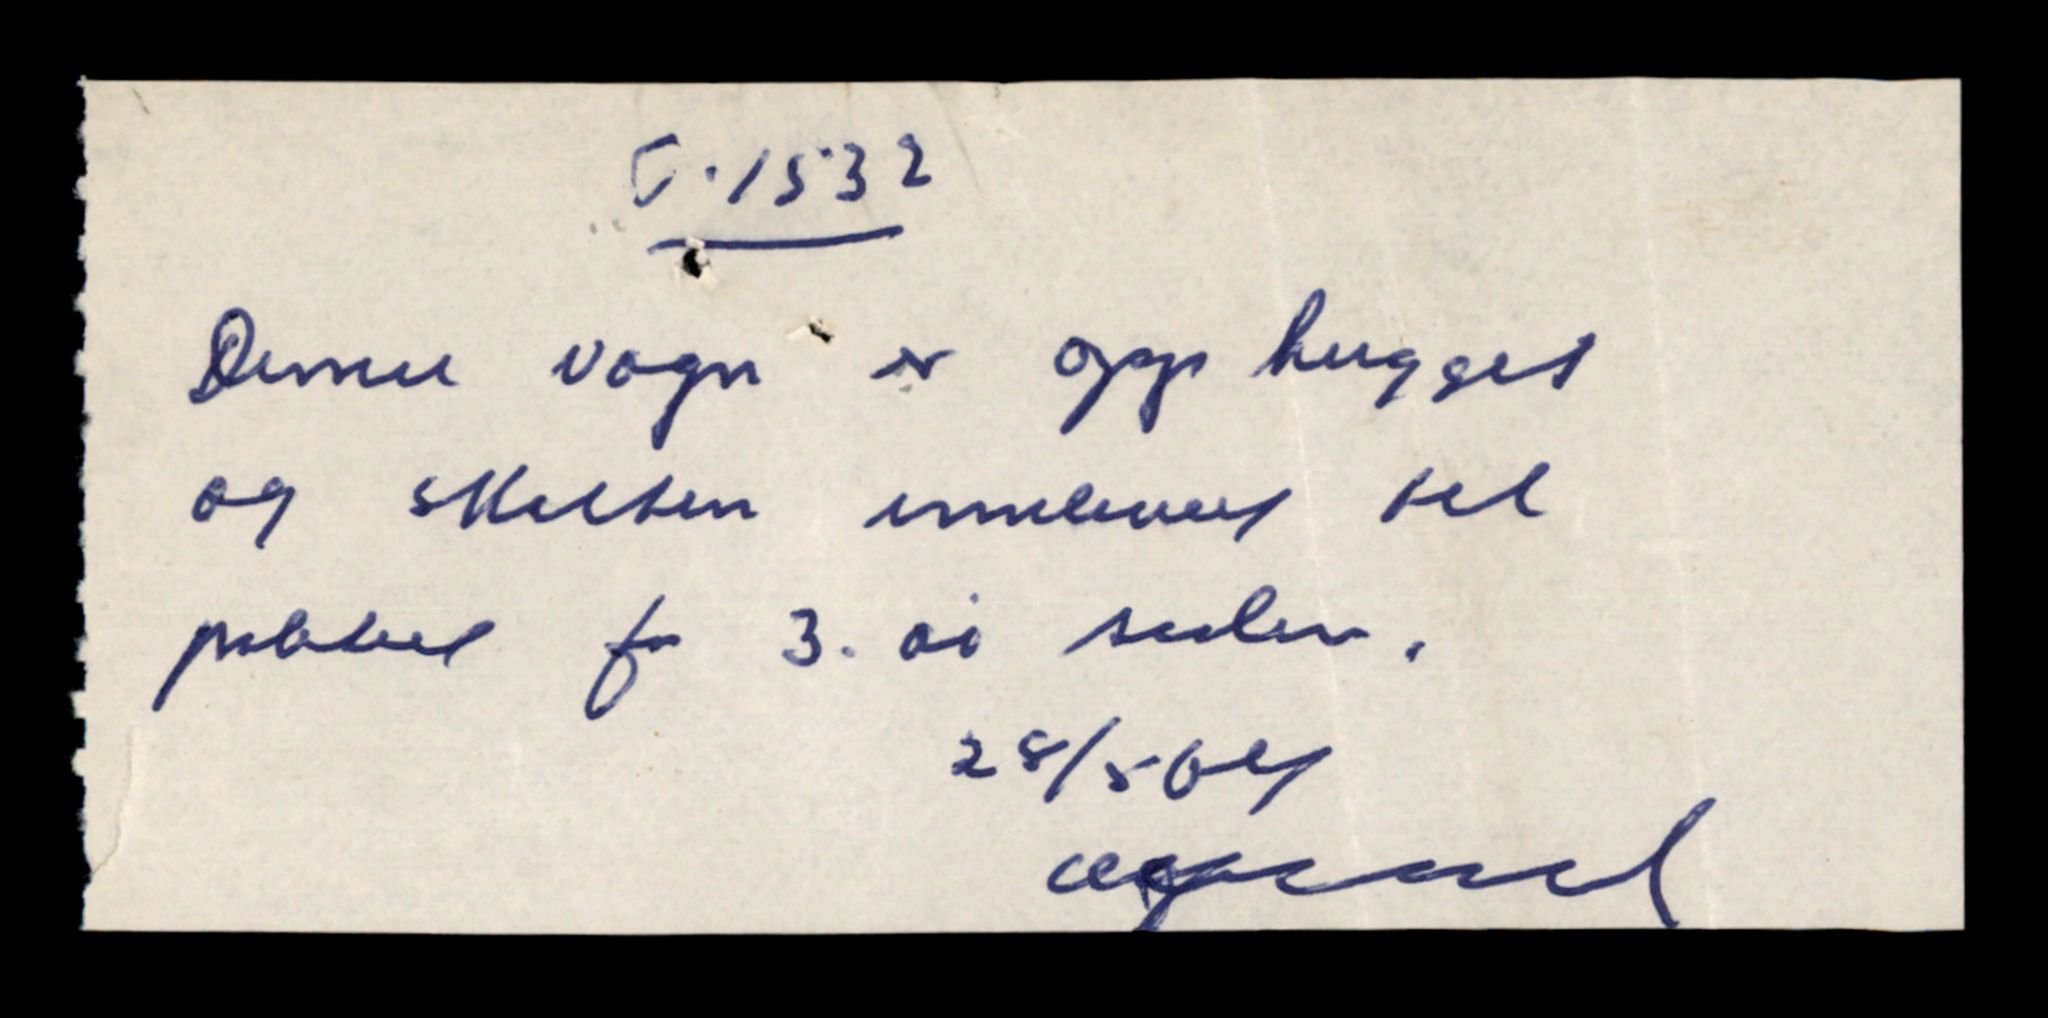 1532
Denne vogn er opp hugget
og skilten innlevert til
politiet for 3. år siden.
28/5 64